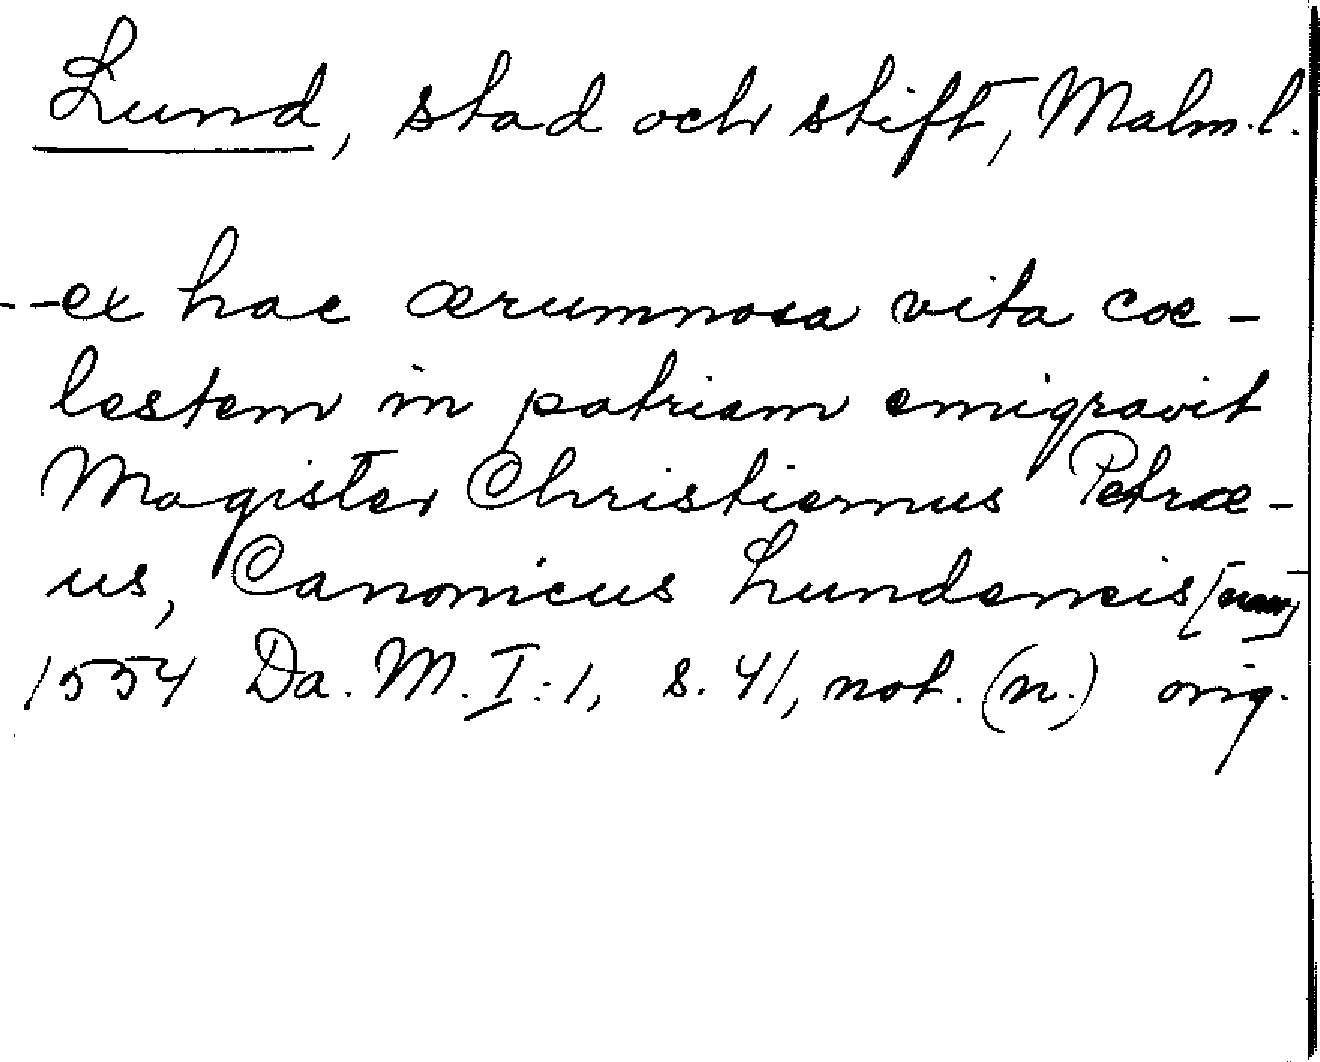 Lund, stad och stift, Malm. l.
--ex hac ærumnosa vita coe-
lestem in patriam emigravit
Magister Christiernus Petræ-
us, Canonicus Lundensis
1554 Da. M. I:1, s. 41, not. (n.) orig.